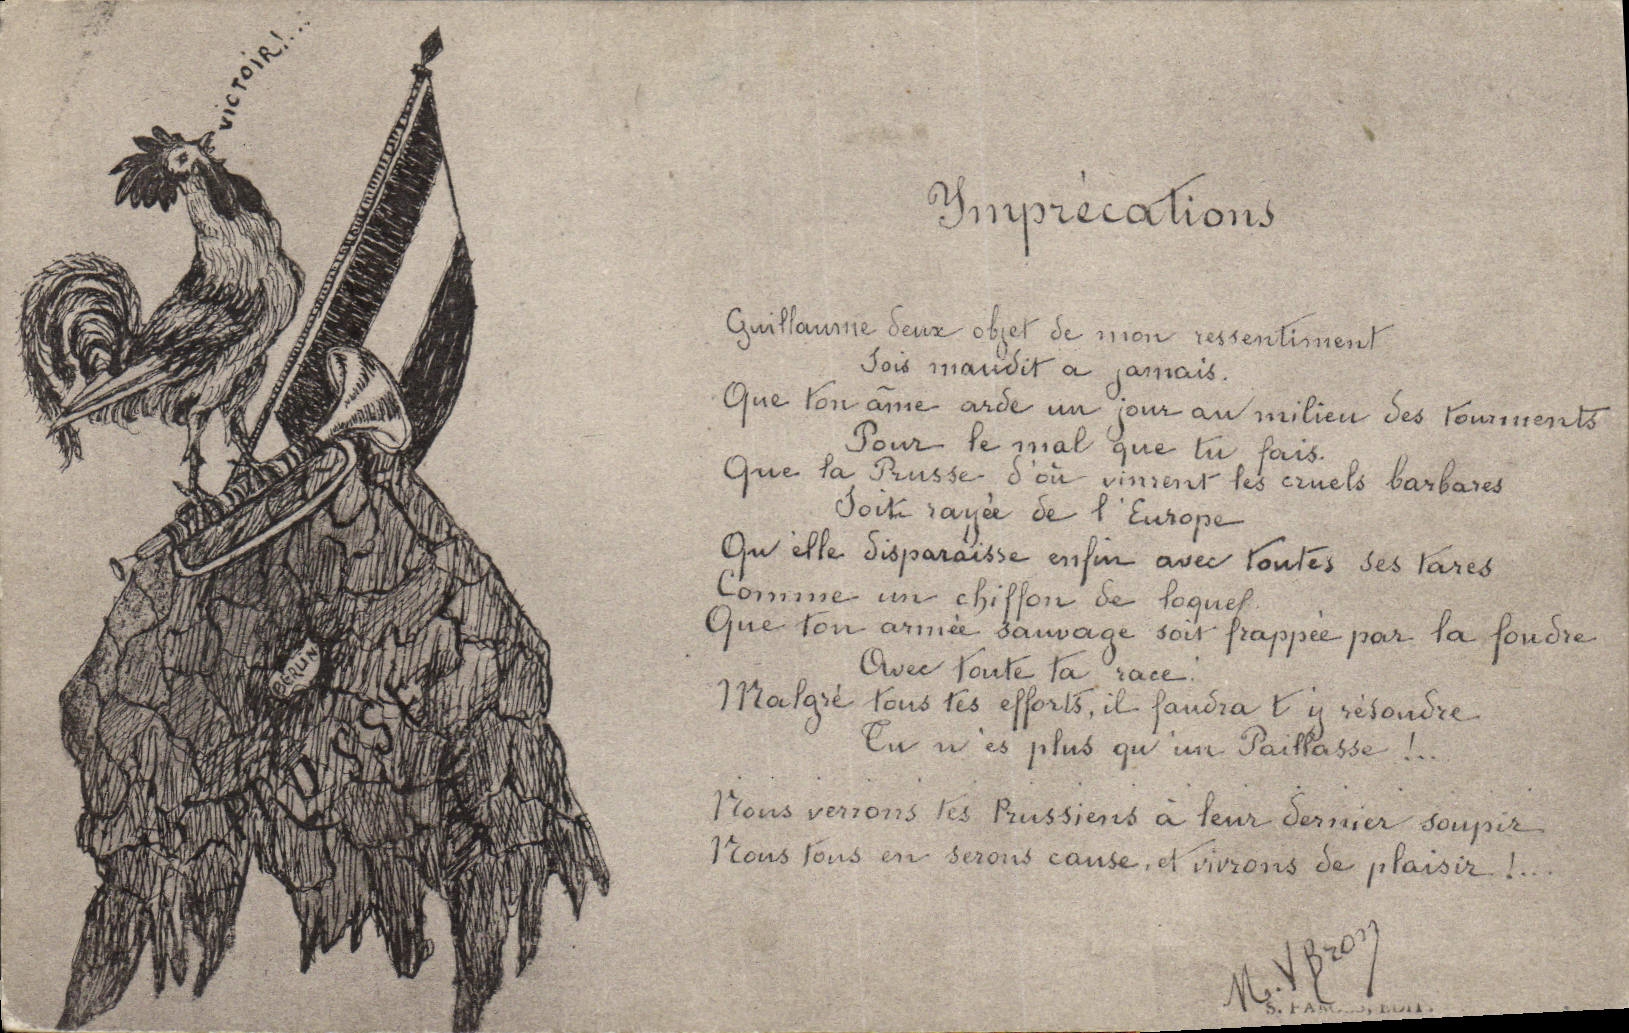 VICTOIR!...
BERLIN
Imprécations
Guillaume deux objet de mon ressentiment
Sois maudit a jamais.
Que ton âme arde un jour au milieu des tourments
Pour le mal que tu fais.
Que la Prusse d'où vinrent les cruels barbares
Soit rayée de l'Europe
Qu'elle disparaisse enfin avec toutes ses tares
Comme un chiffon de loques.
Que ton armée sauvage soit frappée par la foudre
Avec toute ta race!
Malgré tous tes efforts, il faudra t'y résoudre
Tu n'es plus qu'un Paillasse!..
Nous verrons tes Prussiens à leur dernier soupir
Nous tous en serons cause, et vivrons de plaisir!...